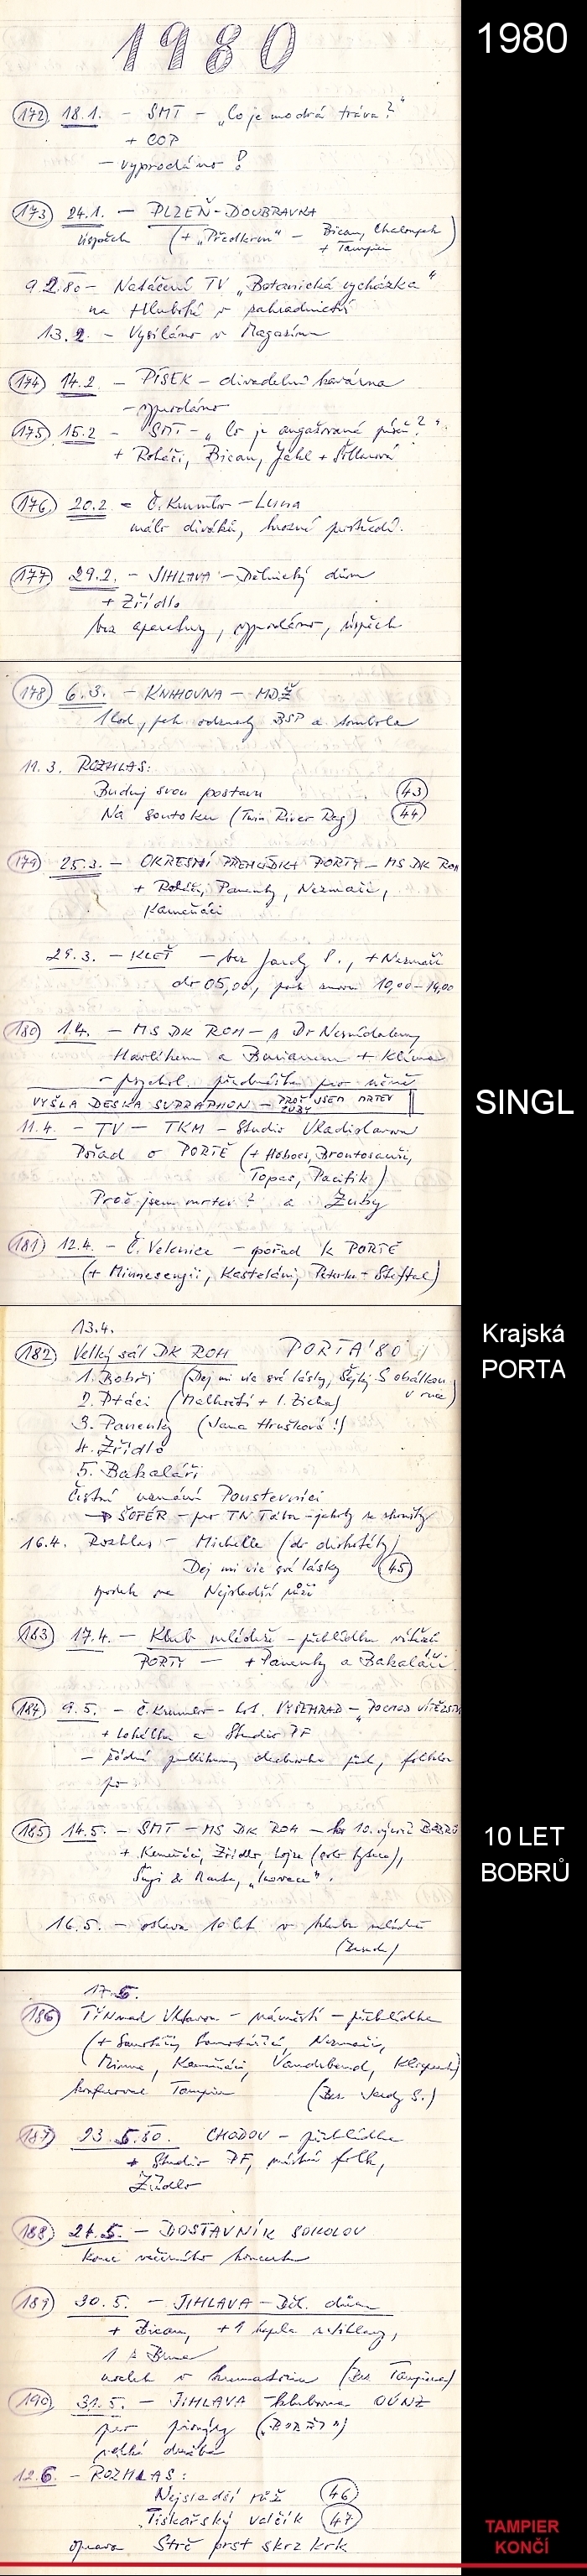 1980
1980
172 18.1. - SMT - „Co je modrá tráva?"
+ COP
- vyprodáno!
173 24.1. - PLZEŇ-DOUBRAVKA
úspěch (+ „Předkrm" - Bican, Chaloupek
+ Tampier)
9.2.80 - Natáčení TV „Botanická vycházka"
na Hluboké v zahradnictví
13.2. - Vysíláno v Magazínu
174 14.2 - PÍSEK - divadelní kavárna
- vyprodáno
175 15.2 - SMT - „Co je angažovaná píseň?"
+ Roháči, Bican, Jahl +
176 20.2 - Č. Krumlov - Luna
málo diváků, hrozné prostředí.
177 29.2. - JIHLAVA - Dělnický dům
+ Zřídlo
bez aparatury, vyprodáno, úspěch
178 6.3. - KNIHOVNA - MDŽ
1 hod., odznaky BSP a tombola
11.3. ROZHLAS:
Buduj svou postavu 43
Na soutoku (Twin River Rag) 44
179 25.3. - OKRESNÍ PŘEHLÍDKA PORTY - MS DK ROH
+ Roháči, Panenky, Nezmaři,
Kameňáci
29.3. - KLEŤ - bez Jardy S., + Nezmaři
do 05,00, pak znovu 10,00-14,00
180 1.4. - MS DK ROH - s Dr Nesnídalem,
Havlíkem a Burianem + Klíma
- psychol. přednáška pro učně
VYŠLA DESKA SUPRAPHON - PROČ JSEM MRTEV
ZUBY
SINGL
11.4. - TV - TKM - Studio Vladislavova
Pořad o PORTĚ (+ Hoboes, Brontosauři,
Topas, Pacifik)
Proč jsem mrtev? a Zuby
181 12.4. - Č. Velenice - pořad k PORTĚ
(+ Minnesengři, Kasteláni, Peterka + Steffal)
13.4.
Krajská
PORTA
182 Velký sál DK ROH PORTA'80
1. Bobři (Dej mi víc své lásky, S obálkou
v ruce)
2. Ptáci (Malhostí + I. Zícha)
3. Panenky (Jana Hrušková!)
4. Zřídlo
5. Bakaláři
Čestné uznání Poustevníci
→ ŠOFÉR - pro TN Tábor
16.4. Rozhlas - Michelle (do diskotéky)
Dej mi víc své lásky 45
Nejsladší růži
183 17.4. - Klub mládeže - přehlídka vítězů
PORTY - + Panenky a Bakaláři
184 9.5. - Č. Krumlov - hot. VYŠEHRAD - „POCHOD VÍTĚZSTVÍ
+ Lokálka a Studio PF
185 14.5. - SMT - MS DK ROH - ke 10. výročí BOBRŮ
+ Kameňáci, Zřídlo,
10 LET
BOBRŮ
16.5. - oslava 10 let v klubu mládeže
17.5.
186 Týn nad Vltavou - náměstí - přehlídka
Nezmaři,
Minne, Kameňáci,
konferoval Tampier (Bez Jardy S.)
187 23.5.80. CHODOV - přehlídka
+ Studio PF,
Zřídlo
188 24.5. - DOSTAVNÍK SOKOLOV
konec večerního koncertu
189 30.5. - JIHLAVA - Děl. dům
+ Bican, + 1 kapela z Jihlavy,
1 z Brna
(Bez Tampiera)
190 31.5. - JIHLAVA klubovna OÚNZ
pro pionýry („BOBŘI")
12.6 - ROZHLAS:
Nejsladší růži 46
Tiskařský valčík 47
oprava Strč prst skrz krk
TAMPIER
KONČÍ